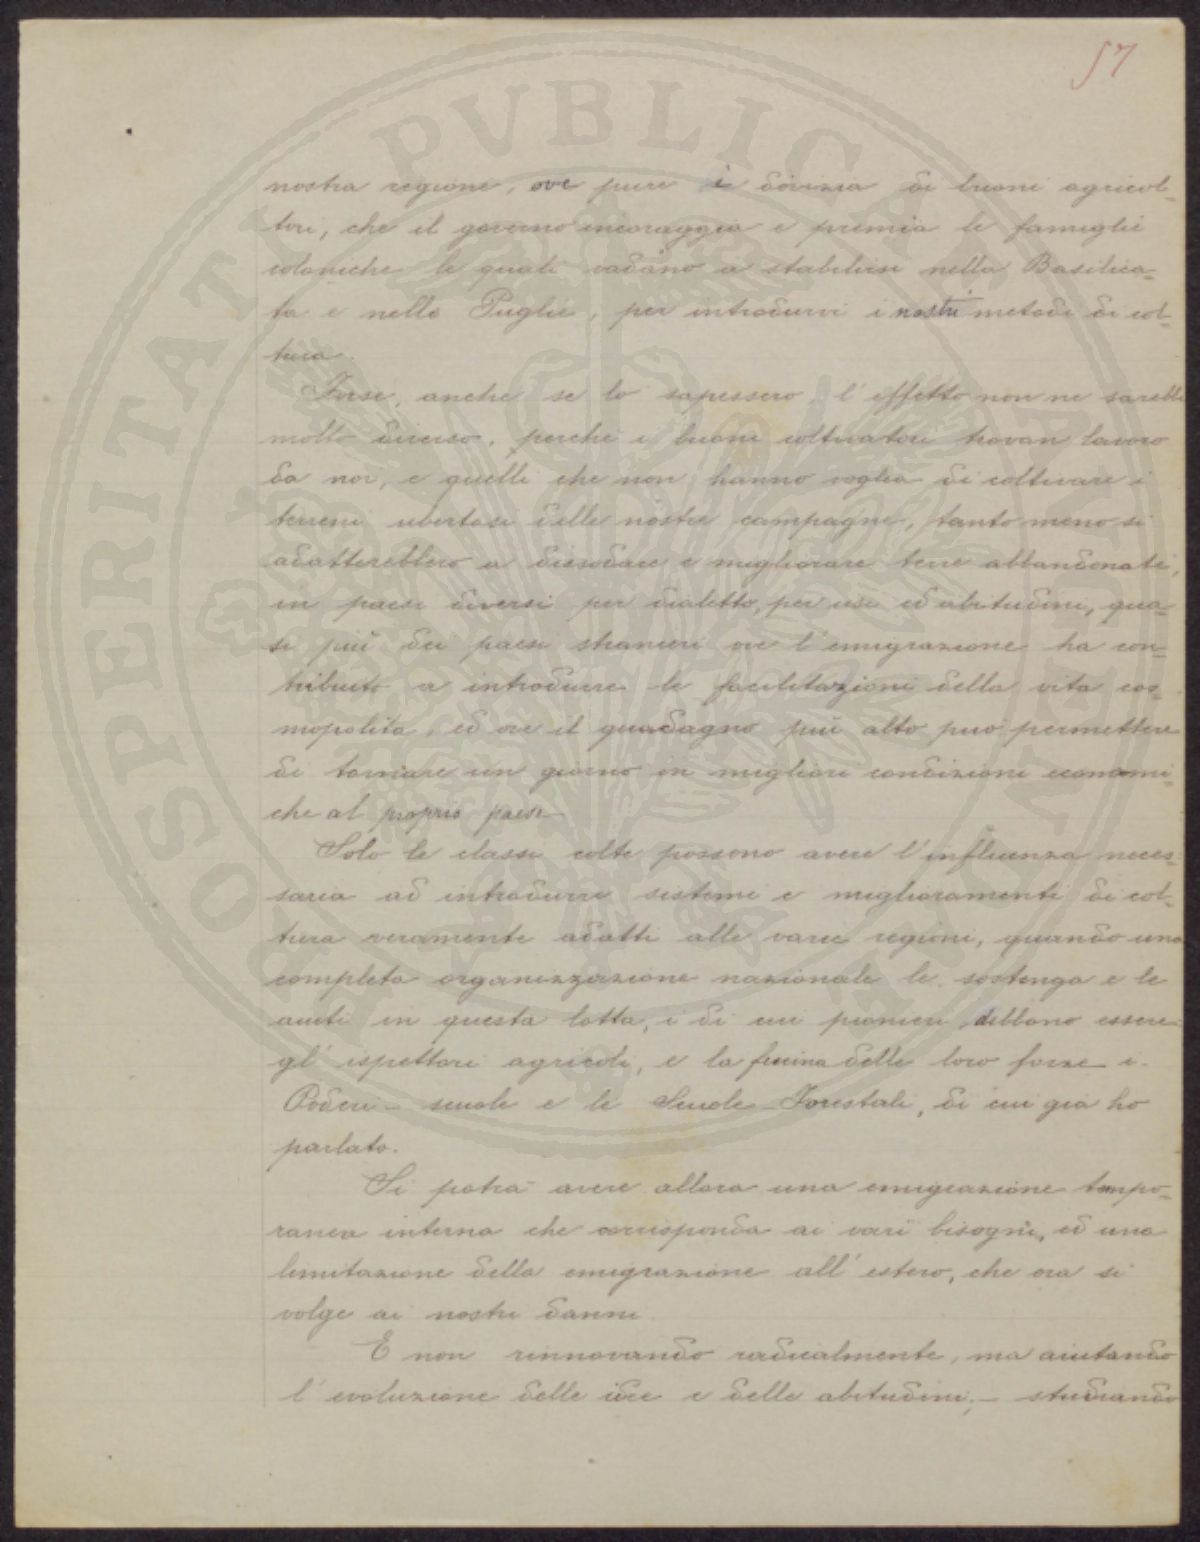 57
nostra regione, ove pure è dovizia di buoni agricol-
tori, che il governo incoraggia e premia le famiglie
coloniche le quali vadano a stabilirsi nella Basilica-
ta e nelle Puglie, per introdurvi i nostri metodi di col-
tura.
Forse, anche se lo sapessero, l'effetto non ne sarebbe
molto diverso, perchè i buoni coltivatori trovan lavoro
da noi, e quelli che non hanno voglia di coltivare i
terreni ubertosi delle nostre campagne, tanto meno si
adatterebbero a dissodare e migliorare terre abbandonate,
in paesi diversi per dialetto, per usi ed abitudini, qua-
si più dei paesi stranieri ove l'emigrazione ha con-
tribuito a introdurre le facilitazioni della vita cos-
mopolita, ed ove il guadagno più alto può permettere
di tornare un giorno in migliori condizioni economi-
che al proprio paese.
Solo le classi colte possono avere l'influenza neces-
saria ad introdurre sistemi e miglioramenti di col-
tura veramente adatti alle varie regioni, quando una
completa organizzazione nazionale le sostenga e le
aiuti in questa lotta, i di cui pionieri debbono essere
gl'ispettori agricoli, e la fucina delle loro forze i
Poderi-scuole e le Scuole-Forestali, di cui già ho
parlato.
Si potrà avere allora una emigrazione tempo-
ranea interna che corrisponda ai varî bisogni, ed una
limitazione della emigrazione all'estero, che ora si
volge ai nostri danni.
E non rinnovando radicalmente, ma aiutando
l'evoluzione delle idee e delle abitudini, - studiando
PUBLICAE
PROSPERITATI